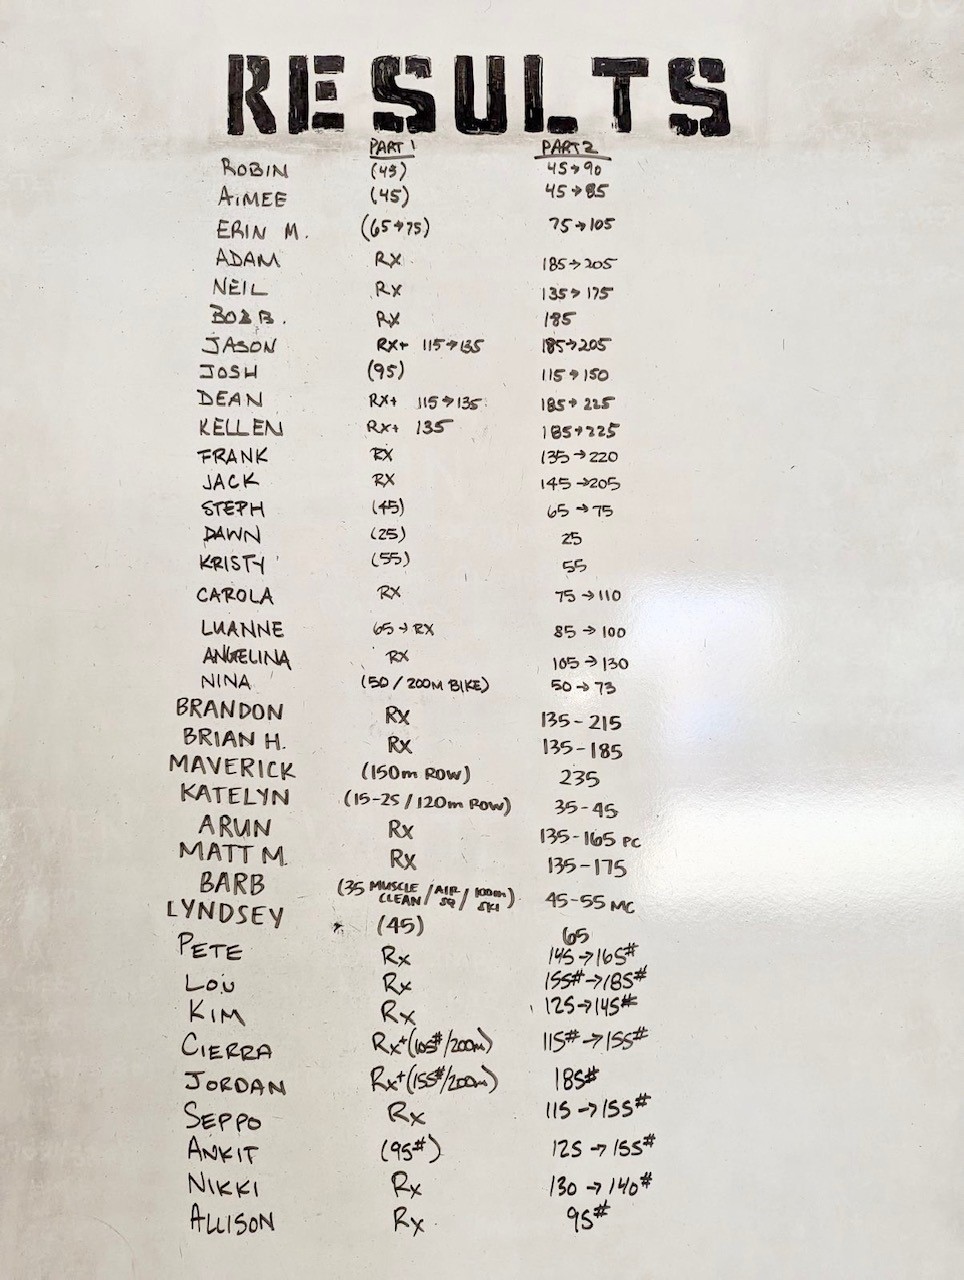 RESULTS
PART 1 PART 2
ROBIN (43) 45→90
AIMEE (45) 45→85
ERIN M. (65→75) 75→105
ADAM RX 185→205
NEIL RX 135→175
BOB B. RX 185
JASON RX+ 115→135 185→205
JOSH (95) 115→150
DEAN RX+ 115→135 185→225
KELLEN RX+ 135 185→225
FRANK RX 135→220
JACK RX 145→205
STEPH (45) 65→75
DAWN (25) 25
KRISTY (55) 55
CAROLA RX 75→110
LUANNE 65→RX 85→100
ANGELINA RX 105→130
NINA (50/200M BIKE) 50→73
BRANDON RX 135-215
BRIAN H. RX 135-185
MAVERICK (150m ROW) 235
KATELYN (15-25/120m ROW) 35-45
ARUN RX 135-165 PC
MATT M. RX 135-175
BARB (35 MUSCLE CLEAN/AIR SQ/100m SKI) 45-55 MC
LYNDSEY (45) 65
PETE Rx 145→165#
LOU Rx 155#→185#
KIM Rx 125→145#
CIERRA Rx+(105#/200m) 115#→155#
JORDAN Rx+(155#/200m) 185#
SEPPO Rx 115→155#
ANKIT (95#) 125→155#
NIKKI Rx 130→140#
ALLISON Rx 95#